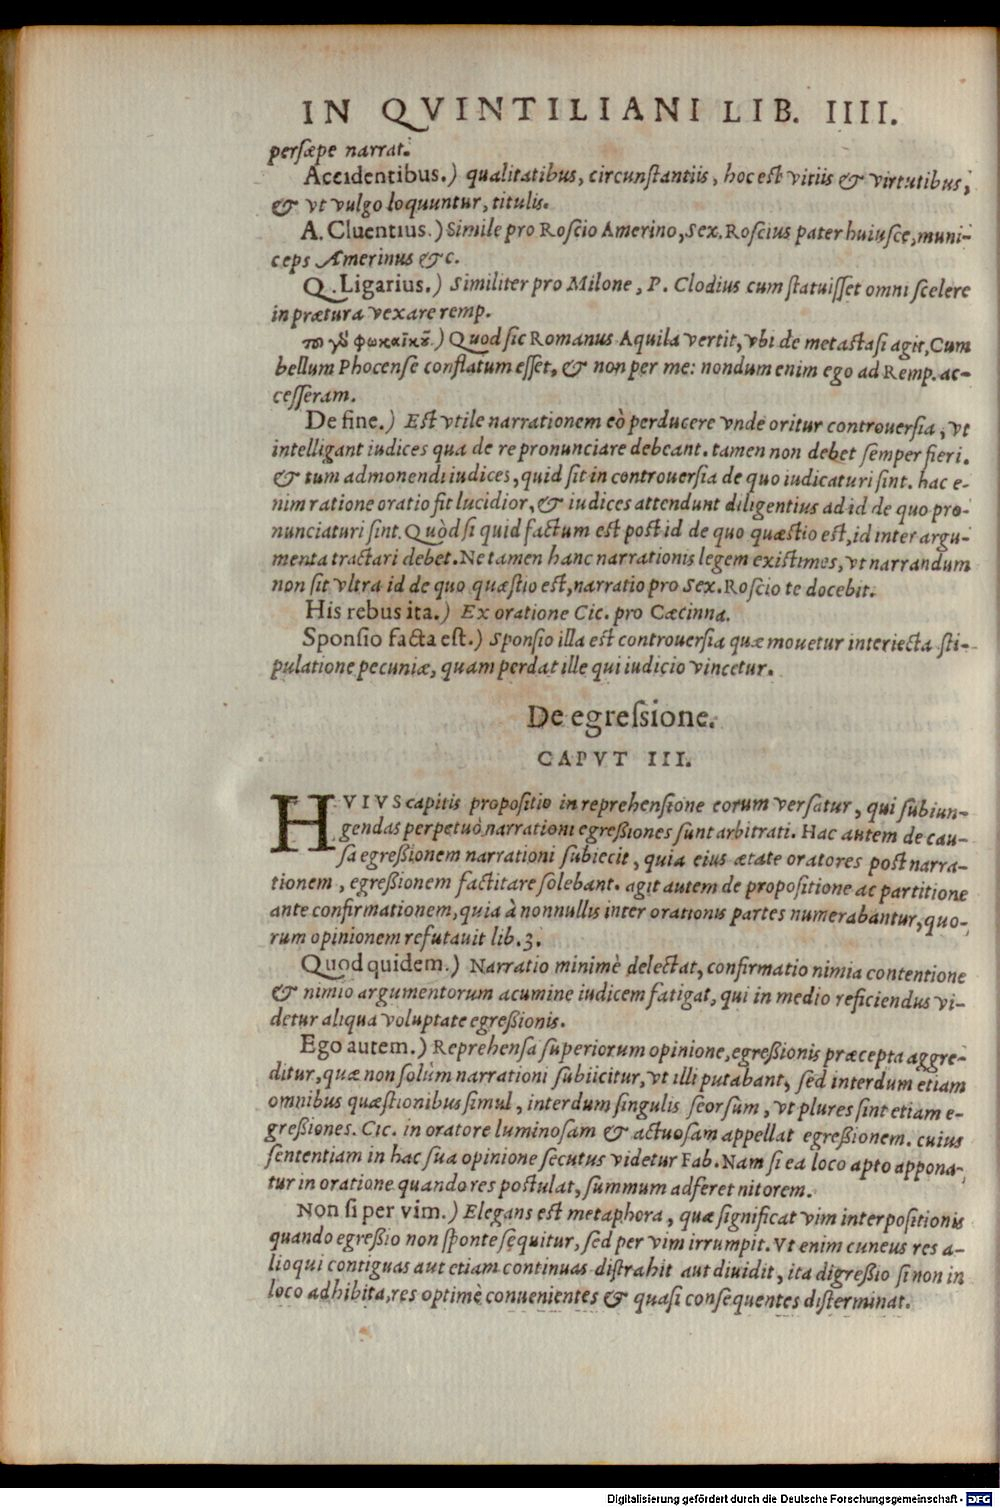 IN QVINTILIANI LIB. IIII.
persæpe narrat.
Accidentibus.) qualitatibus, circunstantiis, hoc est vitiis & virtutibus,
& vt vulgo loquuntur, titulis.
A. Cluentius.) Simile pro Roscio Amerino, Sex. Roscius pater huiusce, muni-
ceps Amerinus &c.
Q. Ligarius.) Similiter pro Milone, P. Clodius cum statuisset omni scelere
in prætura vexare remp.
Quod sic Romanus Aquila vertit, vbi de metastasi agit, Cum
bellum Phocense conflatum esset, & non per me: nondum enim ego ad Remp. ac-
cesseram.
De fine.) Est vtile narrationem eò perducere vnde oritur controuersia, vt
intelligant iudices qua de re pronunciare debeant. tamen non debet semper fieri.
& tum admonendi iudices, quid sit in controuersia de quo iudicaturi sint. hac e-
nim ratione oratio fit lucidior, & iudices attendunt diligentius ad id de quo pro-
nunciaturi sint. Quòd si quid factum est post id de quo quæstio est, id inter argu-
menta tractari debet. Ne tamen hanc narrationis legem existimes, vt narrandum
non sit vltra id de quo quæstio est, narratio pro Sex. Roscio te docebit.
His rebus ita.) Ex oratione Cic. pro Cæcinna.
Sponsio facta est.) Sponsio illa est controuersia quæ mouetur interiecta sti-
pulatione pecuniæ, quam perdat ille qui iudicio vincetur.
De egressione.
CAPVT III.
HVIVS capitis propositio in reprehensione eorum versatur, qui subiun-
gendas perpetuò narrationi egressiones sunt arbitrati. Hac autem de cau-
sa egressionem narrationi subiecit, quia eius ætate oratores post narra-
tionem, egressionem factitare solebant. agit autem de propositione ac partitione
ante confirmationem, quia à nonnullis inter orationis partes numerabantur, quo-
rum opinionem refutauit lib. 3.
Quod quidem.) Narratio minimè delectat, confirmatio nimia contentione
& nimio argumentorum acumine iudicem fatigat, qui in medio reficiendus vi-
detur aliqua voluptate egressionis.
Ego autem.) Reprehensa superiorum opinione, egressionis præcepta aggre-
ditur, quæ non solùm narrationi subiicitur, vt illi putabant, sed interdum etiam
omnibus quæstionibus simul, interdum singulis seorsum, vt plures sint etiam e-
gressiones. Cic. in oratore luminosam & actuosam appellat egressionem. cuius
sententiam in hac sua opinione secutus videtur Fab. Nam si ea loco apto appona-
tur in oratione quando res postulat, summum adferet nitorem.
Non si per vim.) Elegans est metaphora, quæ significat vim interpositionis
quando egressio non sponte sequitur, sed per vim irrumpit. Vt enim cuneus res a-
lioqui contiguas aut etiam continuas distrahit aut diuidit, ita digressio si non in
loco adhibita, res optimè conuenientes & quasi consequentes disterminat.
Digitalisierung gefördert durch die Deutsche Forschungsgemeinschaft - DFG